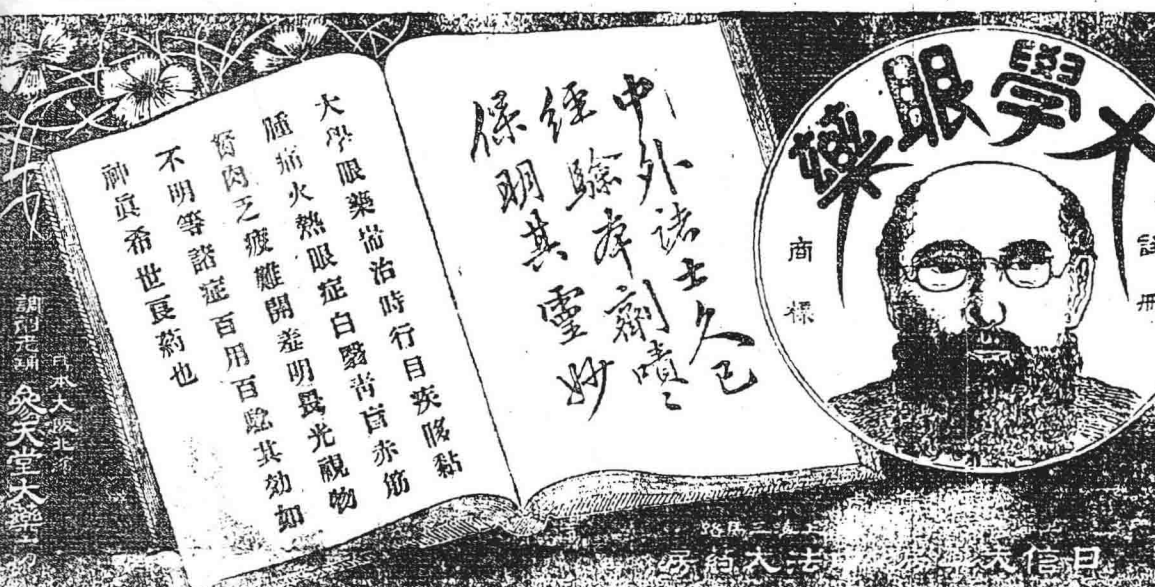 大學眼藥
註冊
商標
中外諸士久已
經驗本劑嘖〻
保明其靈妙
大學眼藥耑治時行目疾眵黏
腫痛火熱眼症白翳青盲赤筋
胬肉乏疲難開羞明畏光視物
不明等諸症百用百驗其効如
神眞希世良葯也
日本大阪北
參天堂大藥
上海三馬路
日信大藥房 中法大葯房